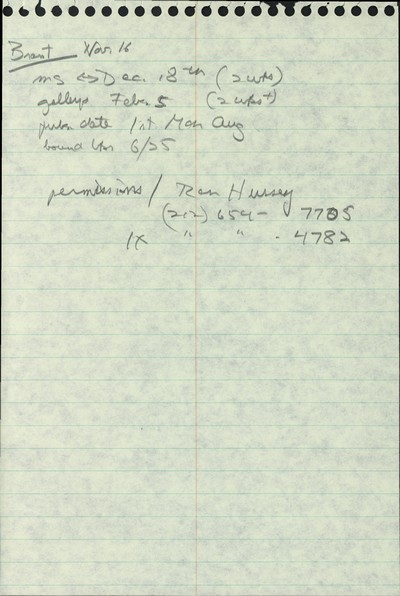 Brant Nov. 16
ms <-> Dec. 18th (2 wks)
galleys Feb. 5 (2 wks+)
pub. date 1st Mon Aug
bound 6/25
permissions / Hersey
(212) 654- 7705
" " - 4782